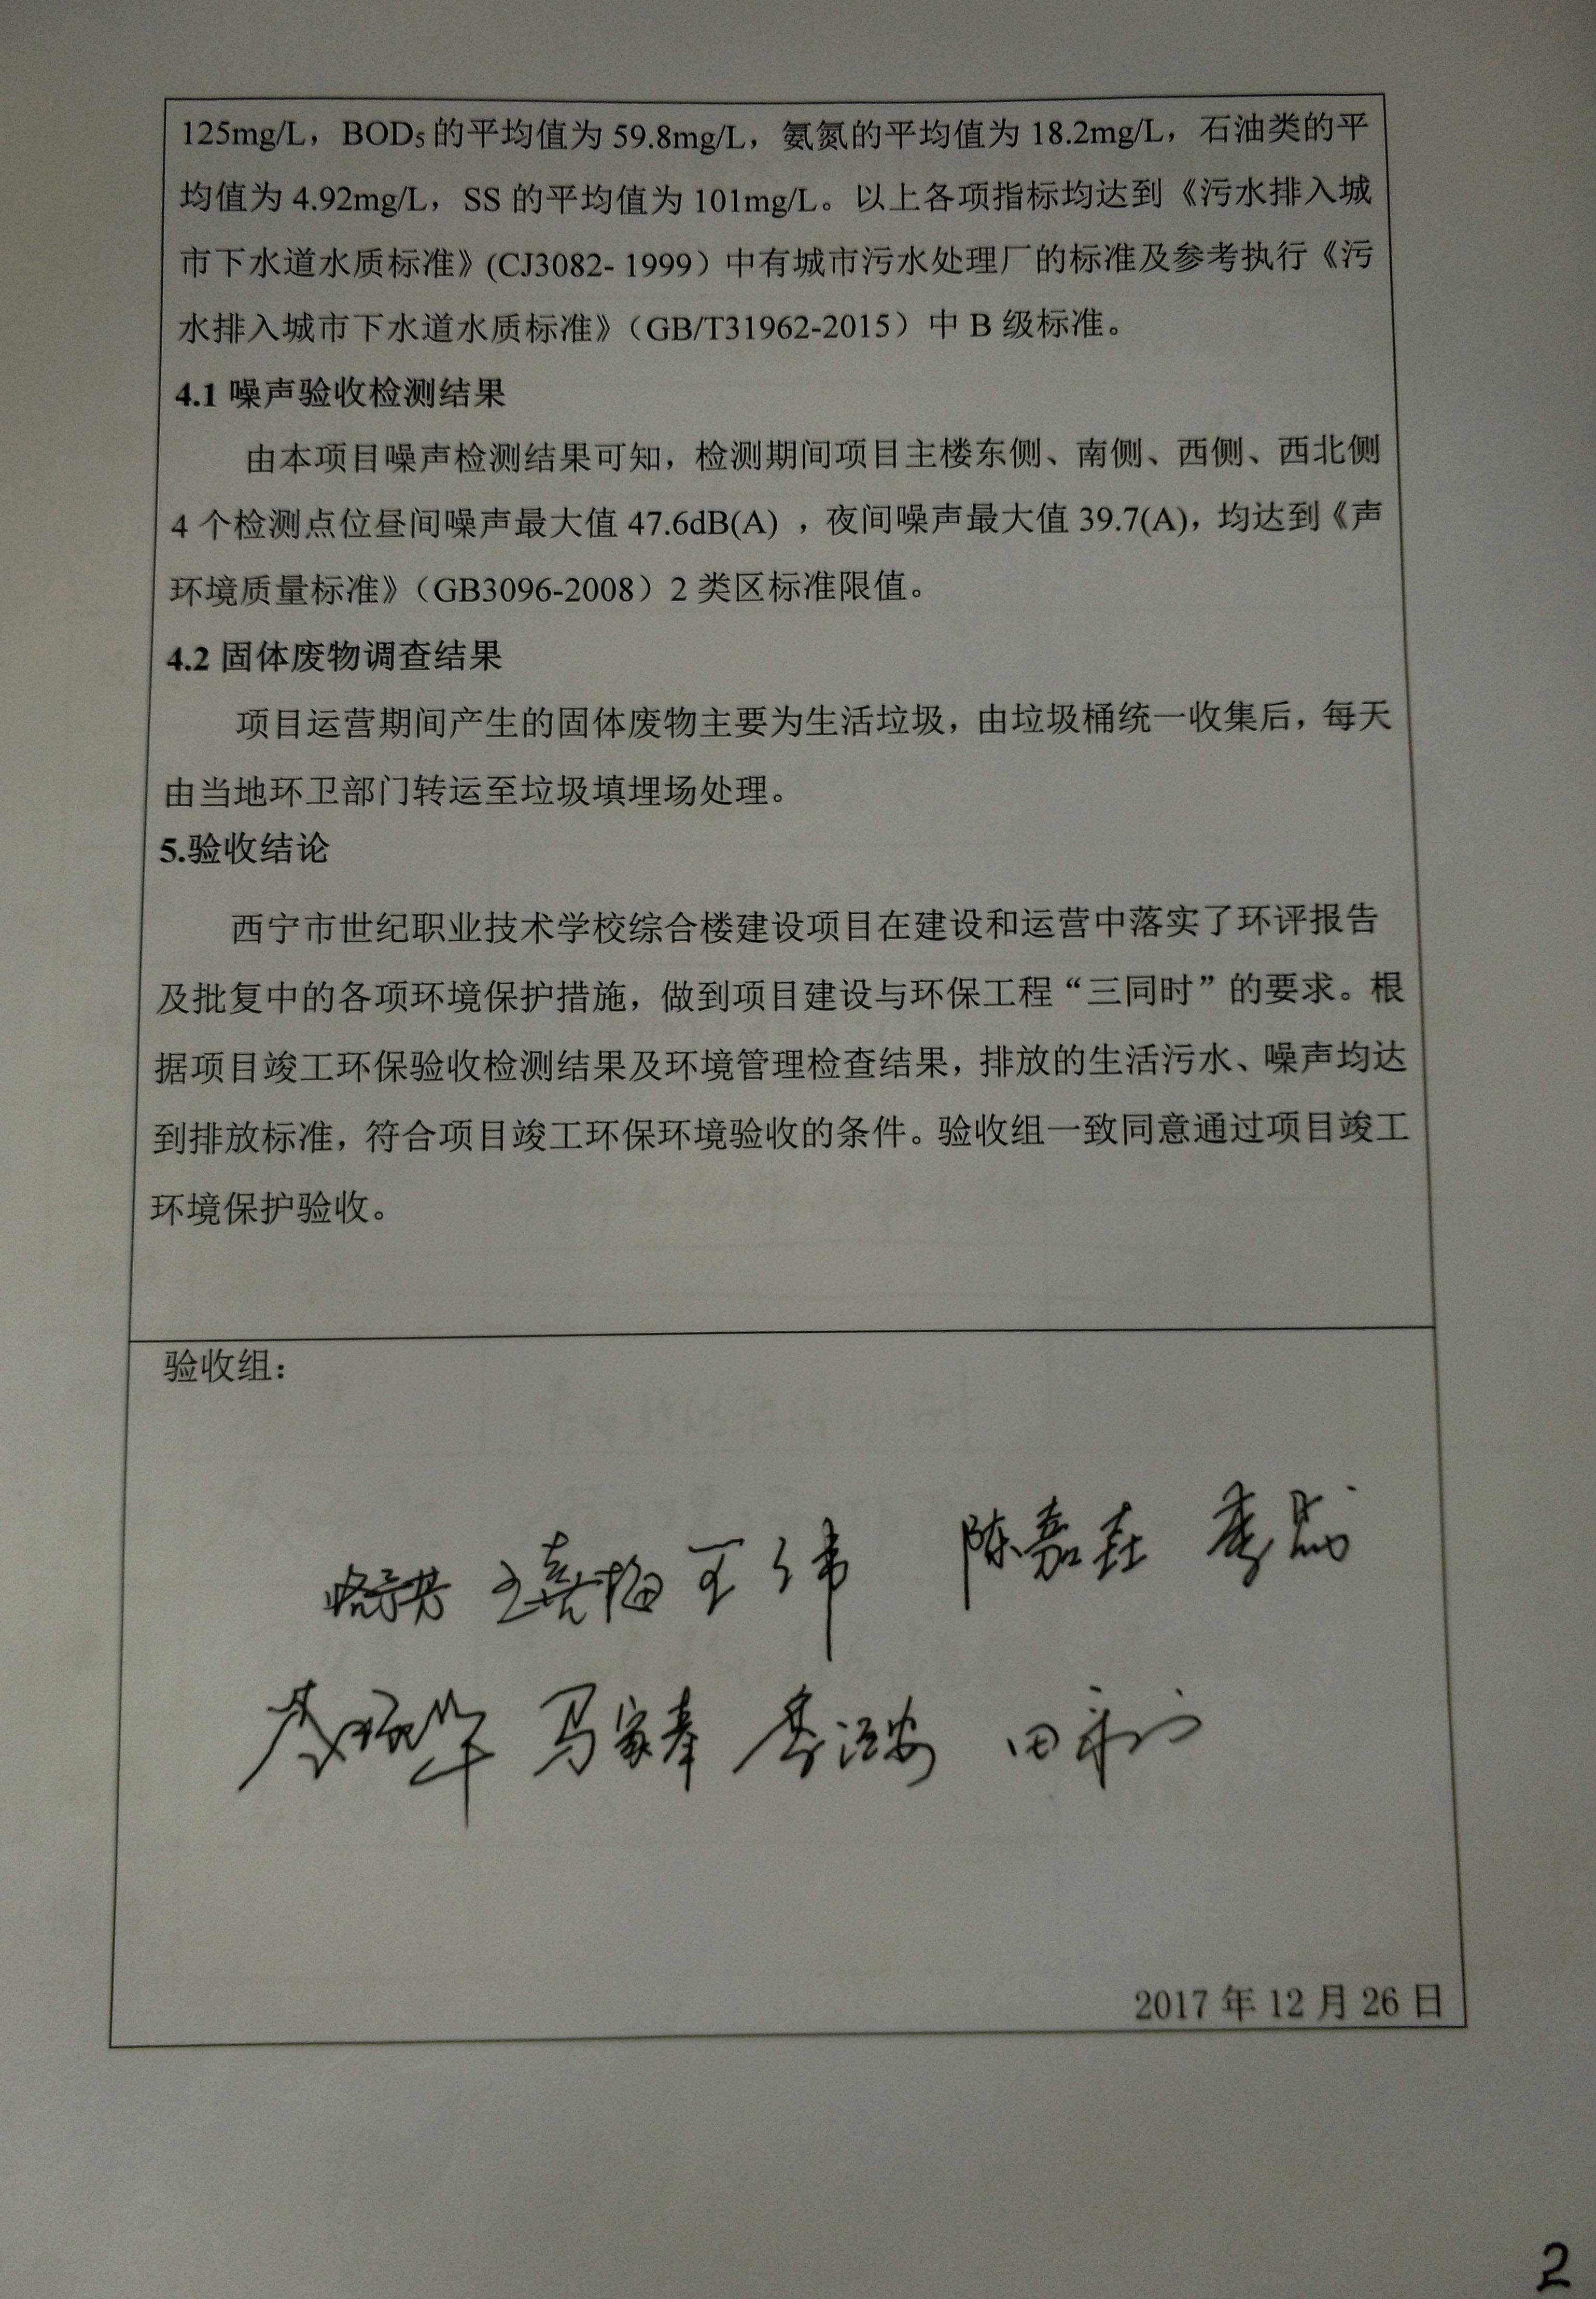 125mg/L，BOD₅的平均值为 59.8mg/L，氨氮的平均值为 18.2mg/L，石油类的平
均值为 4.92mg/L，SS 的平均值为 101mg/L。以上各项指标均达到《污水排入城
市下水道水质标准》(CJ3082- 1999）中有城市污水处理厂的标准及参考执行《污
水排入城市下水道水质标准》（GB/T31962-2015）中 B 级标准。
4.1 噪声验收检测结果
由本项目噪声检测结果可知，检测期间项目主楼东侧、南侧、西侧、西北侧
4 个检测点位昼间噪声最大值 47.6dB(A) ，夜间噪声最大值 39.7(A)，均达到《声
环境质量标准》（GB3096-2008）2 类区标准限值。
4.2 固体废物调查结果
项目运营期间产生的固体废物主要为生活垃圾，由垃圾桶统一收集后，每天
由当地环卫部门转运至垃圾填埋场处理。
5.验收结论
西宁市世纪职业技术学校综合楼建设项目在建设和运营中落实了环评报告
及批复中的各项环境保护措施，做到项目建设与环保工程“三同时”的要求。根
据项目竣工环保验收检测结果及环境管理检查结果，排放的生活污水、噪声均达
到排放标准，符合项目竣工环保环境验收的条件。验收组一致同意通过项目竣工
环境保护验收。
验收组：
王喜梅 王伟 陈嘉
马家奉
2017 年 12 月 26 日
2